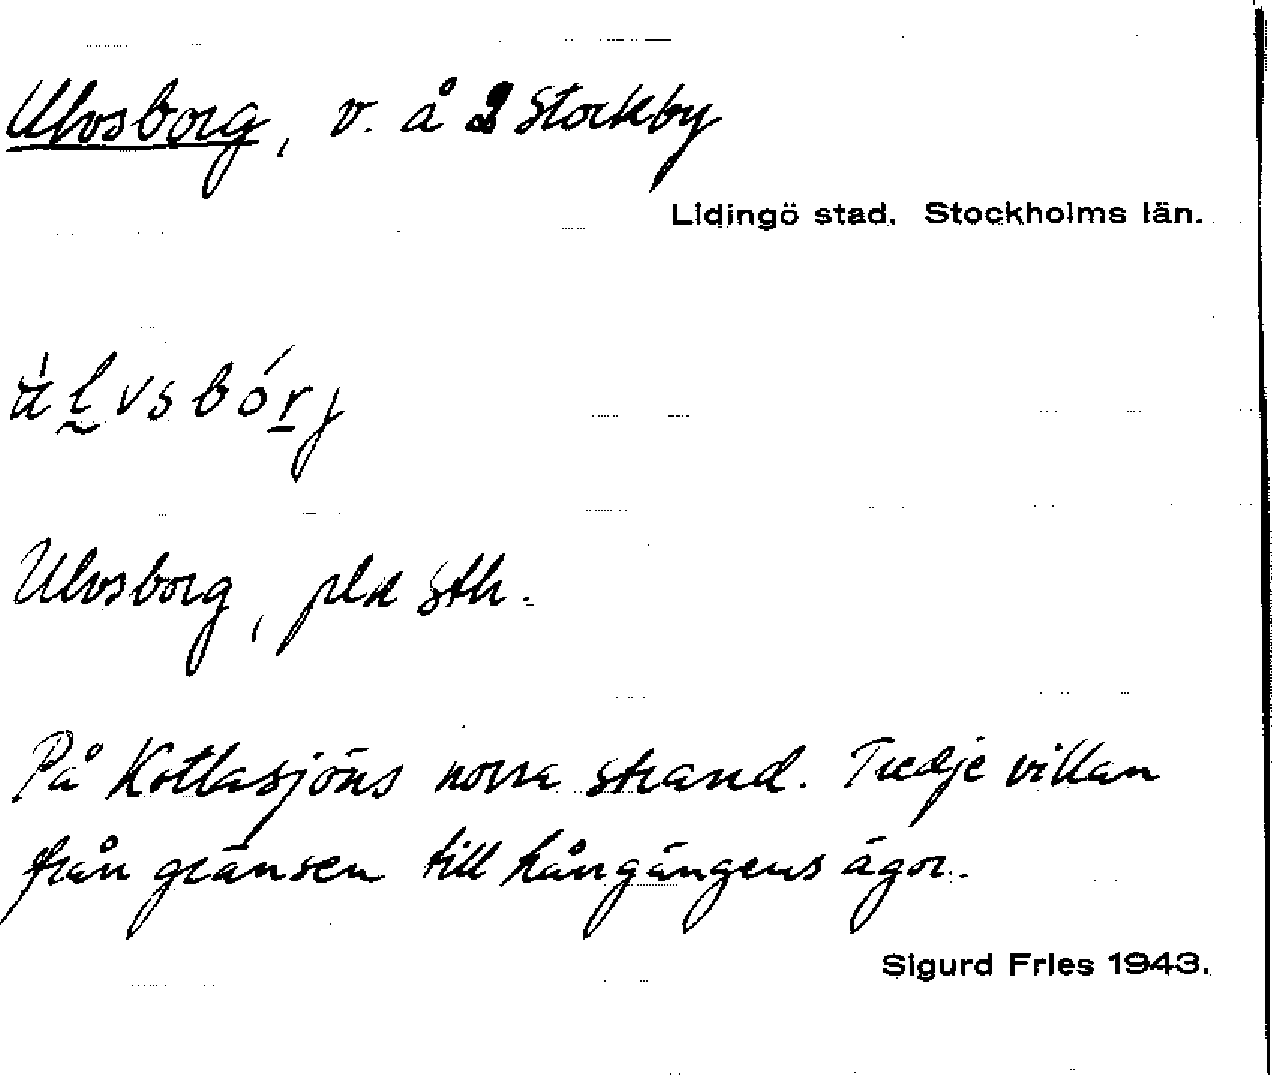 Ulvsborg, v. å 2 Stockby
Lidingö stad. Stockholms län.
ù̈lvsbórj
Ulvsborg, pld Sth.
På Kottlasjöns norra strand. Tredje villan
från gränsen till hångängens ägor.
Sigurd Fries 1943.